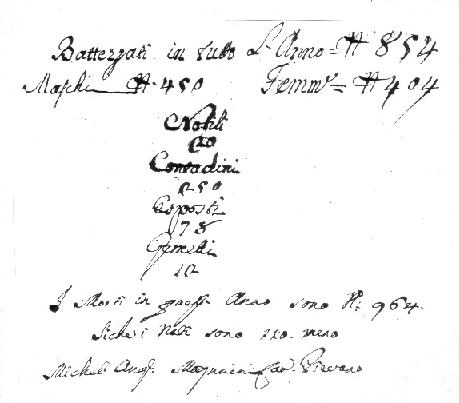 Battezzati in tutto L'Anno = N 854
Maschi N 450 Femm.e = N 404
Nobili
20
Contadini
250
Esposti
78
Gemelli
12
I Morti in quest' Anno sono N: 964.
Sicche i Nati sono 110. meno
Michel Ang.